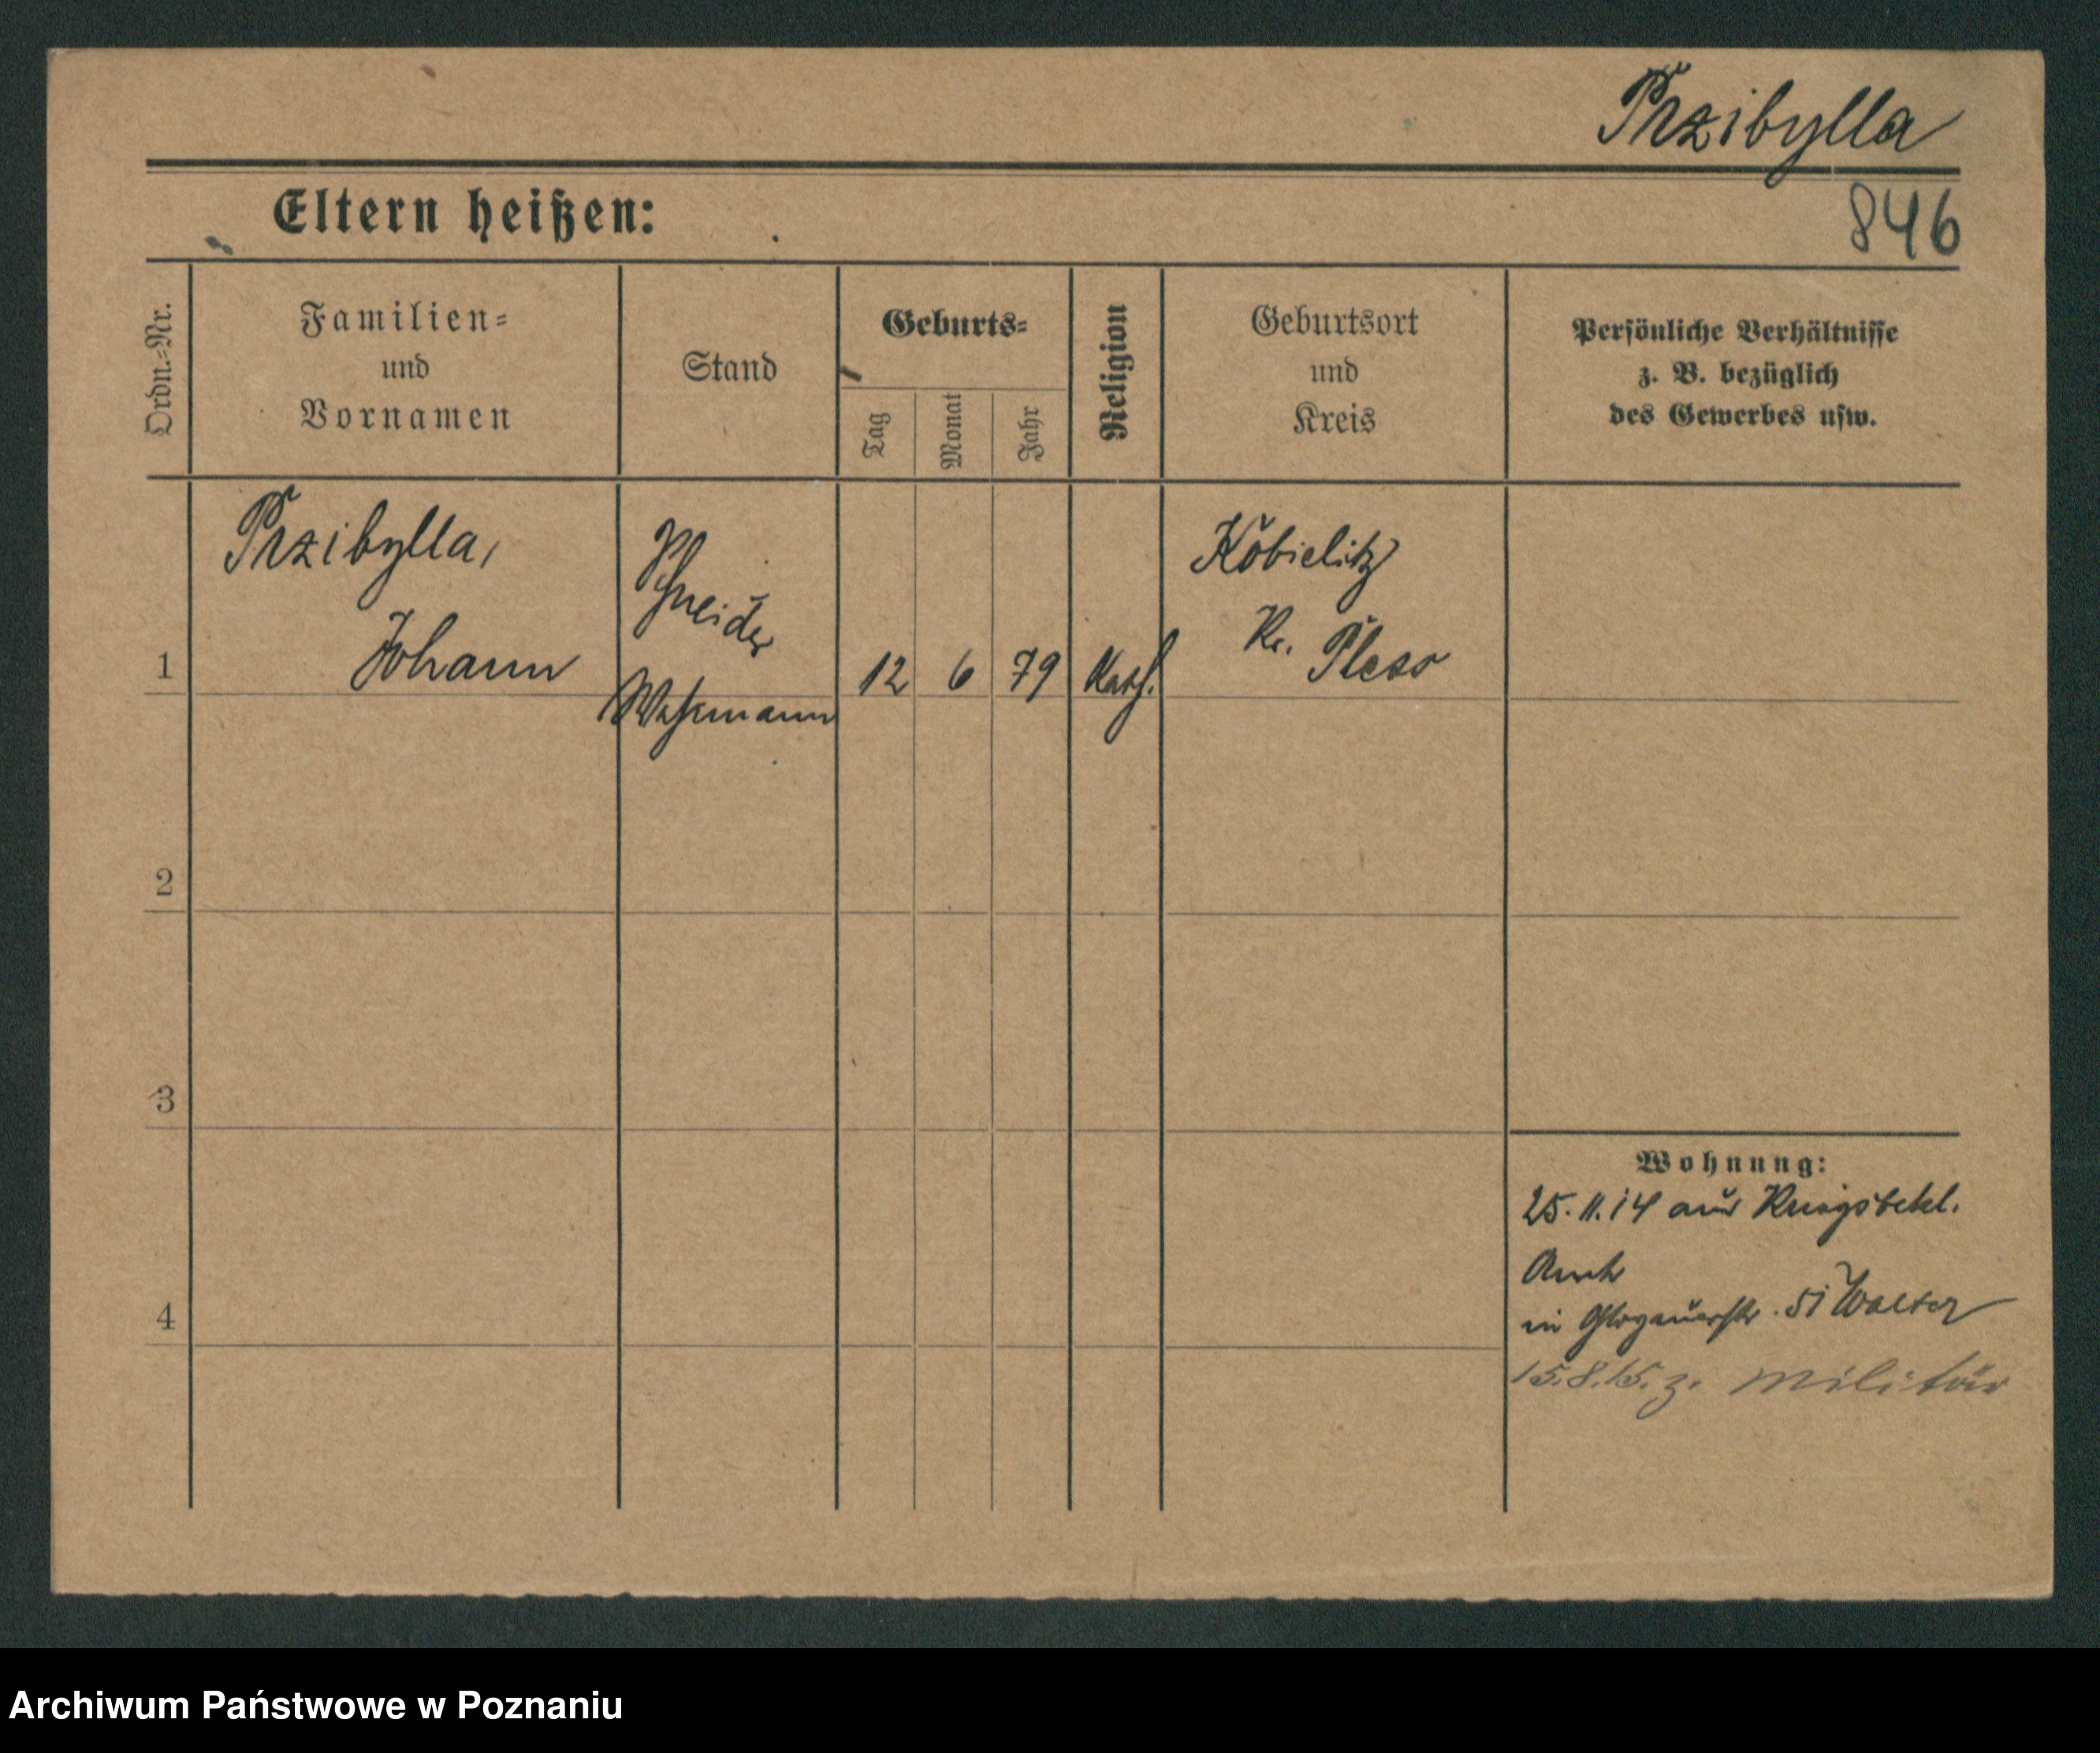 Przibylla
Eltern heißen:
846
Ordn.-Nr.
Familien-
und
Vornamen
Stand
Geburts-
Tag
Monat
Jahr
Religion
Geburtsort
und
Kreis
Persönliche Verhältnisse
z. B. bezüglich
des Gewerbes usw.
1
Przibylla,
Johann
Schneider
Wehrmann
12 6 79
Kath.
Kobielitz
Kr. Pless
2
3
4
Wohnung:
25.11.14 aus Kriegsbekl.
Amt
in Glogauerstr. 51 Walter
15.8.15. z. Militär
Archiwum Państwowe w Poznaniu